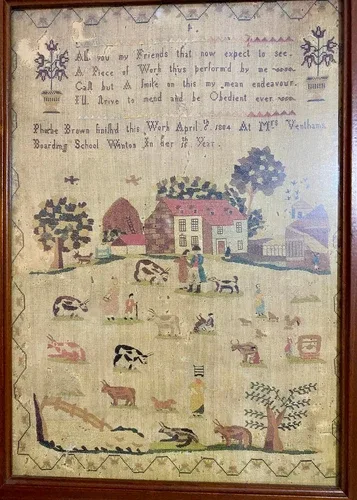 All you my Friends that now expect to see.
A Piece of Work thus perform'd by me
Cast but A Smile on this my mean endeavour.
I'll Strive to mend and be Obedient ever
Phebe Brown finish'd this Work April 1804 At Mrs Venthams
Boarding School Winton In her Year.